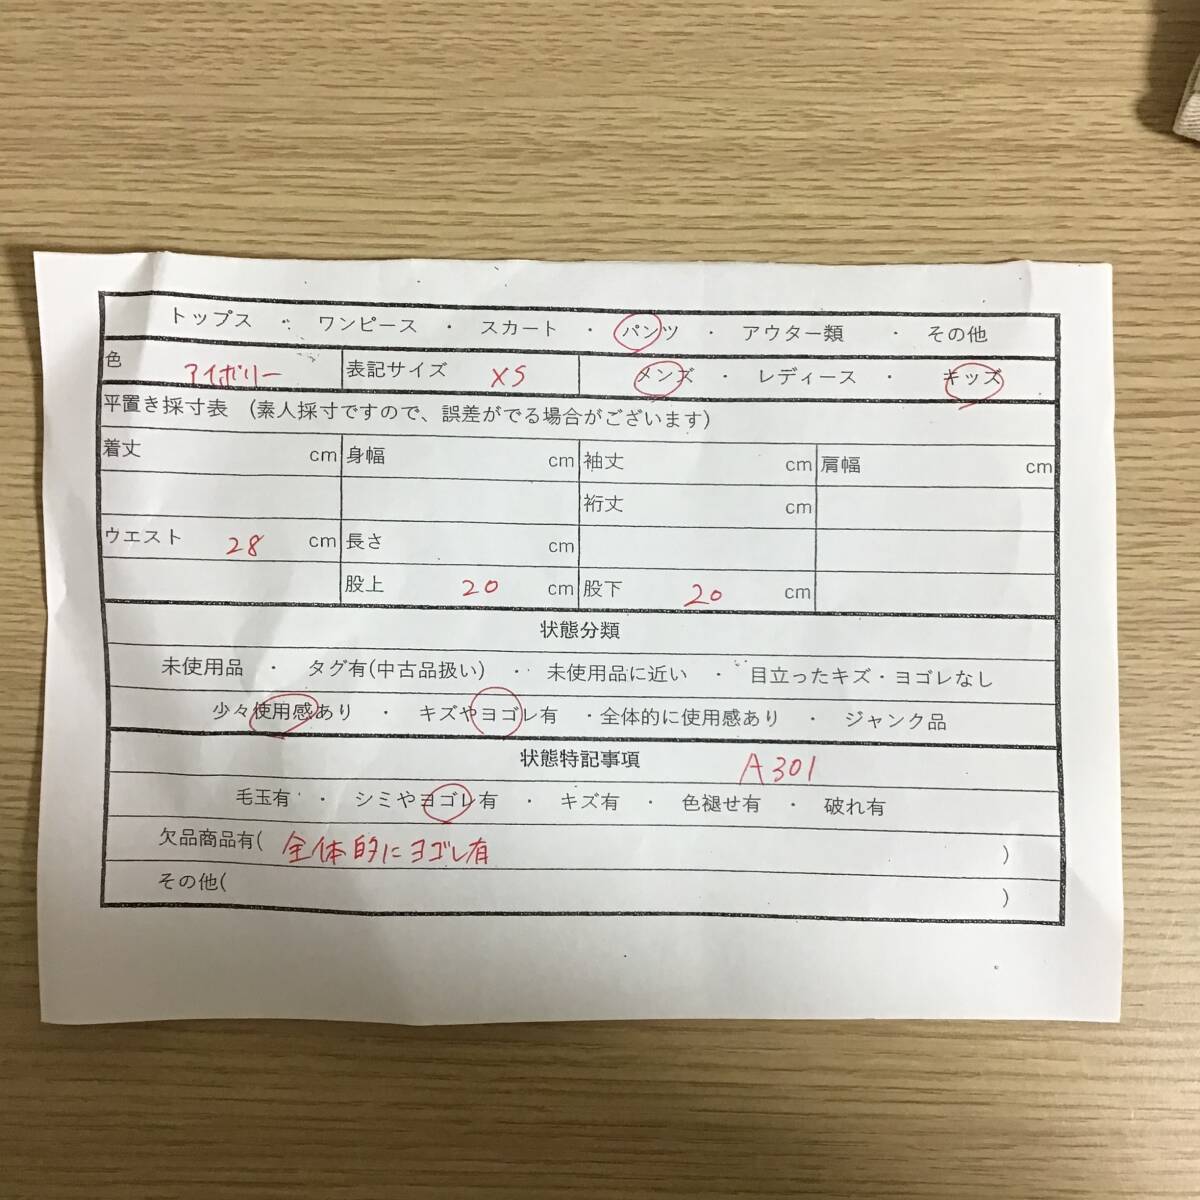 トップス ・ ワンピース ・ スカート ・ パンツ ・ アウター類 ・ その他
色 アイボリー 表記サイズ XS メンズ ・ レディース ・ キッズ
平置き採寸表 (素人採寸ですので、誤差がでる場合がございます)
着丈 cm 身幅 cm 袖丈 cm 肩幅 cm
裄丈 cm
ウエスト 28 cm 長さ cm
股上 20 cm 股下 20 cm
状態分類
未使用品 ・ タグ有(中古品扱い) ・ 未使用品に近い ・ 目立ったキズ・ヨゴレなし
少々使用感あり ・ キズやヨゴレ有 ・全体的に使用感あり ・ ジャンク品
状態特記事項 A301
毛玉有 ・ シミやヨゴレ有 ・ キズ有 ・ 色褪せ有 ・ 破れ有
欠品商品有( 全体的にヨゴレ有 )
その他( )